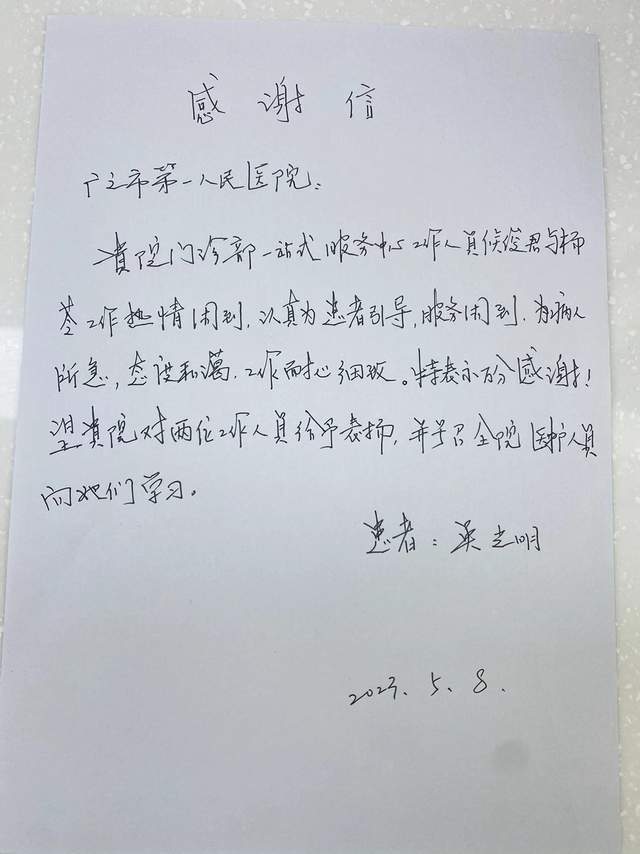 感谢信
广元市第一人民医院:
贵院门诊部一站式服务中心工作人员侯俊君与杨
苓工作热情周到,认真为患者引导,服务周到.为病人
所急,态度和蔼.工作耐心细致。特表示万分感谢!
望贵院对两位工作人员给予表扬,并号召全院医护人员
向她们学习。
患者:吴志明
2023.5.8.